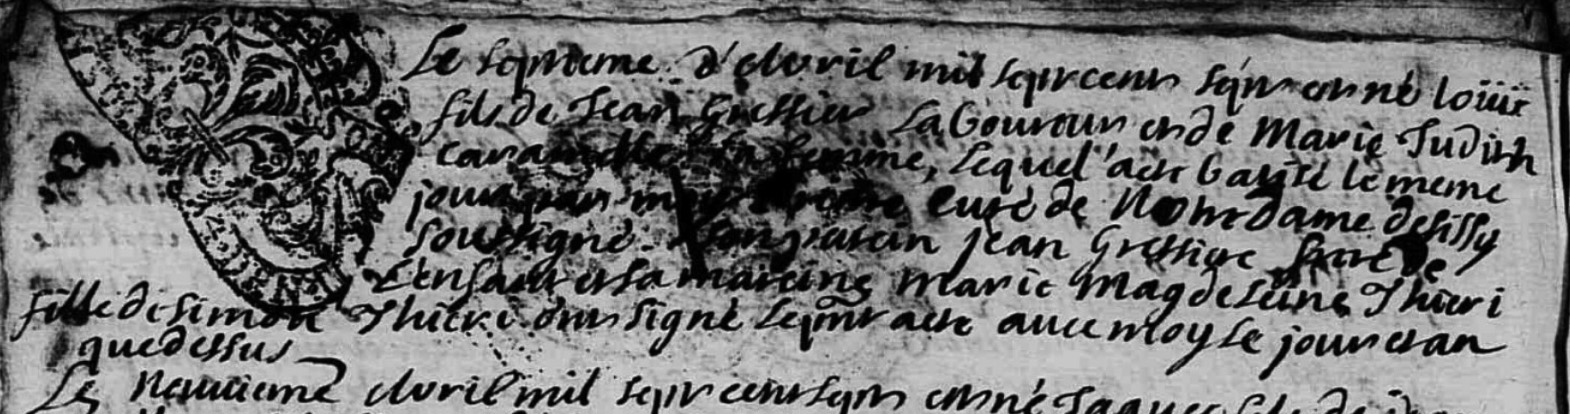 Le septieme d'Avril mil sept cent sept est né loüis
fils de Jean Greffier Laboureur et de Marie Judith
sa femme, lequel a été batisé le meme
jour par moy curé de Notre dame de sissy
soussigné. son parain jean Greffier frere de
L'enfant et sa mareine marie Magdeleine Thieri
fille de simon Thieri ont signé le pnt acte avec moy le jour et an
que dessus
Le neuvieme Avril mil sept cent sept est né Jaques fils de